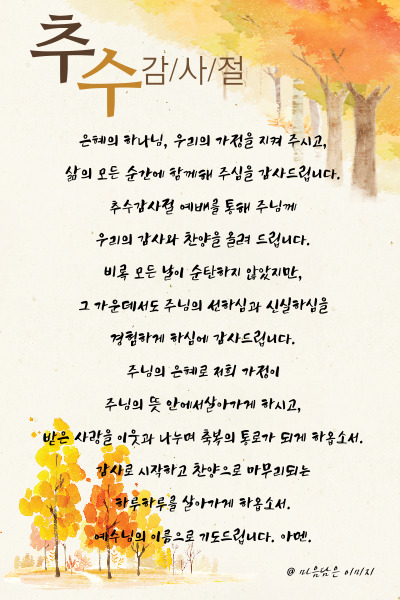 추수감/사/절
은혜의 하나님, 우리의 가정을 지켜 주시고,
삶의 모든 순간에 함께해 주심을 감사드립니다.
추수감사절 예배를 통해 주님께
우리의 감사와 찬양을 올려 드립니다.
비록 모든 날이 순탄하지 않았지만,
그 가운데서도 주님의 선하심과 신실하심을
경험하게 하심에 감사드립니다.
주님의 은혜로 저희 가정이
주님의 뜻 안에서살아가게 하시고,
받은 사랑을 이웃과 나누며 축복의 통로가 되게 하옵소서.
감사로 시작하고 찬양으로 마무리되는
하루하루를 살아가게 하옵소서.
예수님의 이름으로 기도드립니다. 아멘.
@ 마음담은 이미지